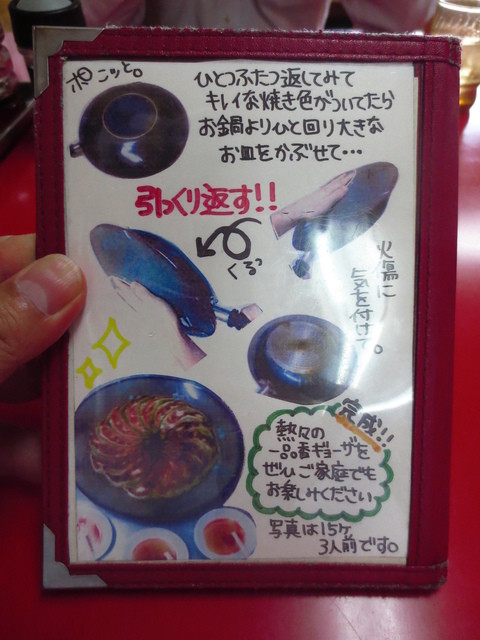 ポコッと。
ひとつふたつ返してみて
キレイな焼き色がついてたら
お鍋よりひと回り大きな
お皿をかぶせて…
引っくり返す!!
くるっ
火傷に
気を付けて。
完成!!
熱々の
一品香ギョーザを
ぜひご家庭でも
お楽しみください
写真は15ケ
3人前です。